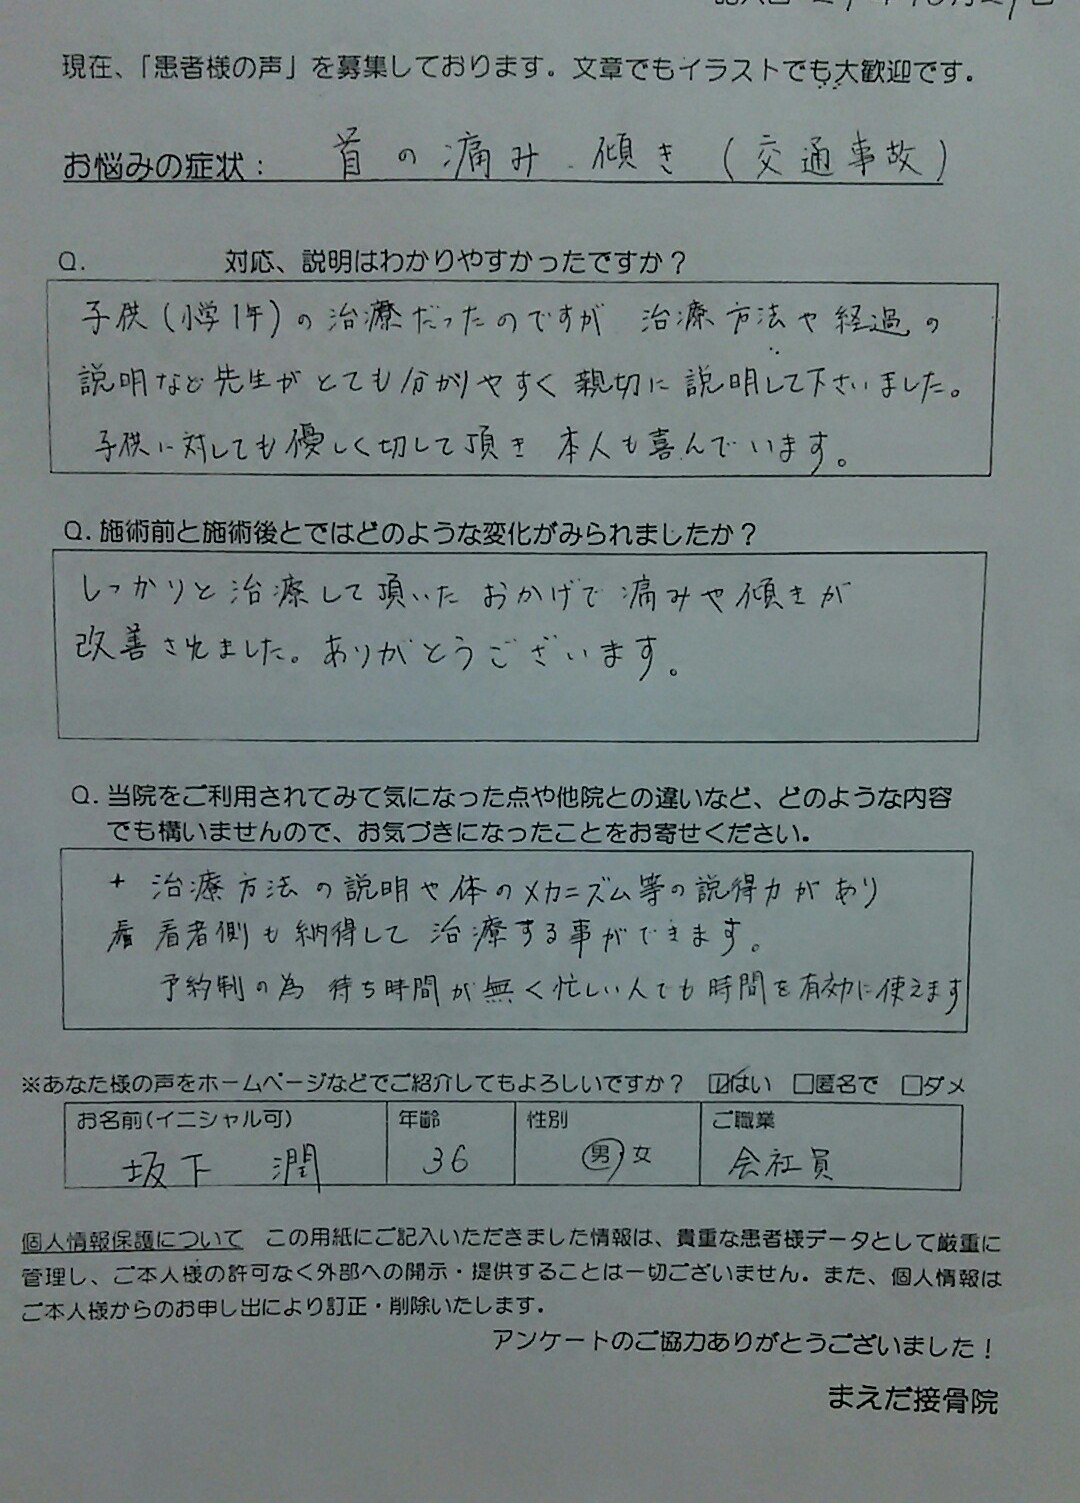 現在、「患者様の声」を募集しております。文章でもイラストでも大歓迎です。
お悩みの症状： 首の痛み 傾き (交通事故)
Q. 対応、説明はわかりやすかったですか？
子供(小学1年)の治療だったのですが 治療方法や経過の
説明など先生がとても分かりやすく親切に説明して下さいました。
子供に対しても優しく切して頂き 本人も喜んでいます。
Q. 施術前と施術後とではどのような変化がみられましたか？
しっかりと治療して頂いたおかげで痛みや傾きが
改善されました。ありがとうございます。
Q. 当院をご利用されてみて気になった点や他院との違いなど、どのような内容
でも構いませんので、お気づきになったことをお寄せください。
治療方法の説明や体のメカニズム等の説得力があり
看者側も納得して治療する事ができます。
予約制の為 待ち時間が無く忙しい人でも時間を有効に使えます
※あなた様の声をホームページなどでご紹介してもよろしいですか？ ☑はい □匿名で □ダメ
お名前(イニシャル可) 年齢 性別 ご職業
坂下 潤 36 男・女 会社員
個人情報保護について この用紙にご記入いただきました情報は、貴重な患者様データとして厳重に
管理し、ご本人様の許可なく外部への開示・提供することは一切ございません。また、個人情報は
ご本人様からのお申し出により訂正・削除いたします。
アンケートのご協力ありがとうございました！
まえだ接骨院